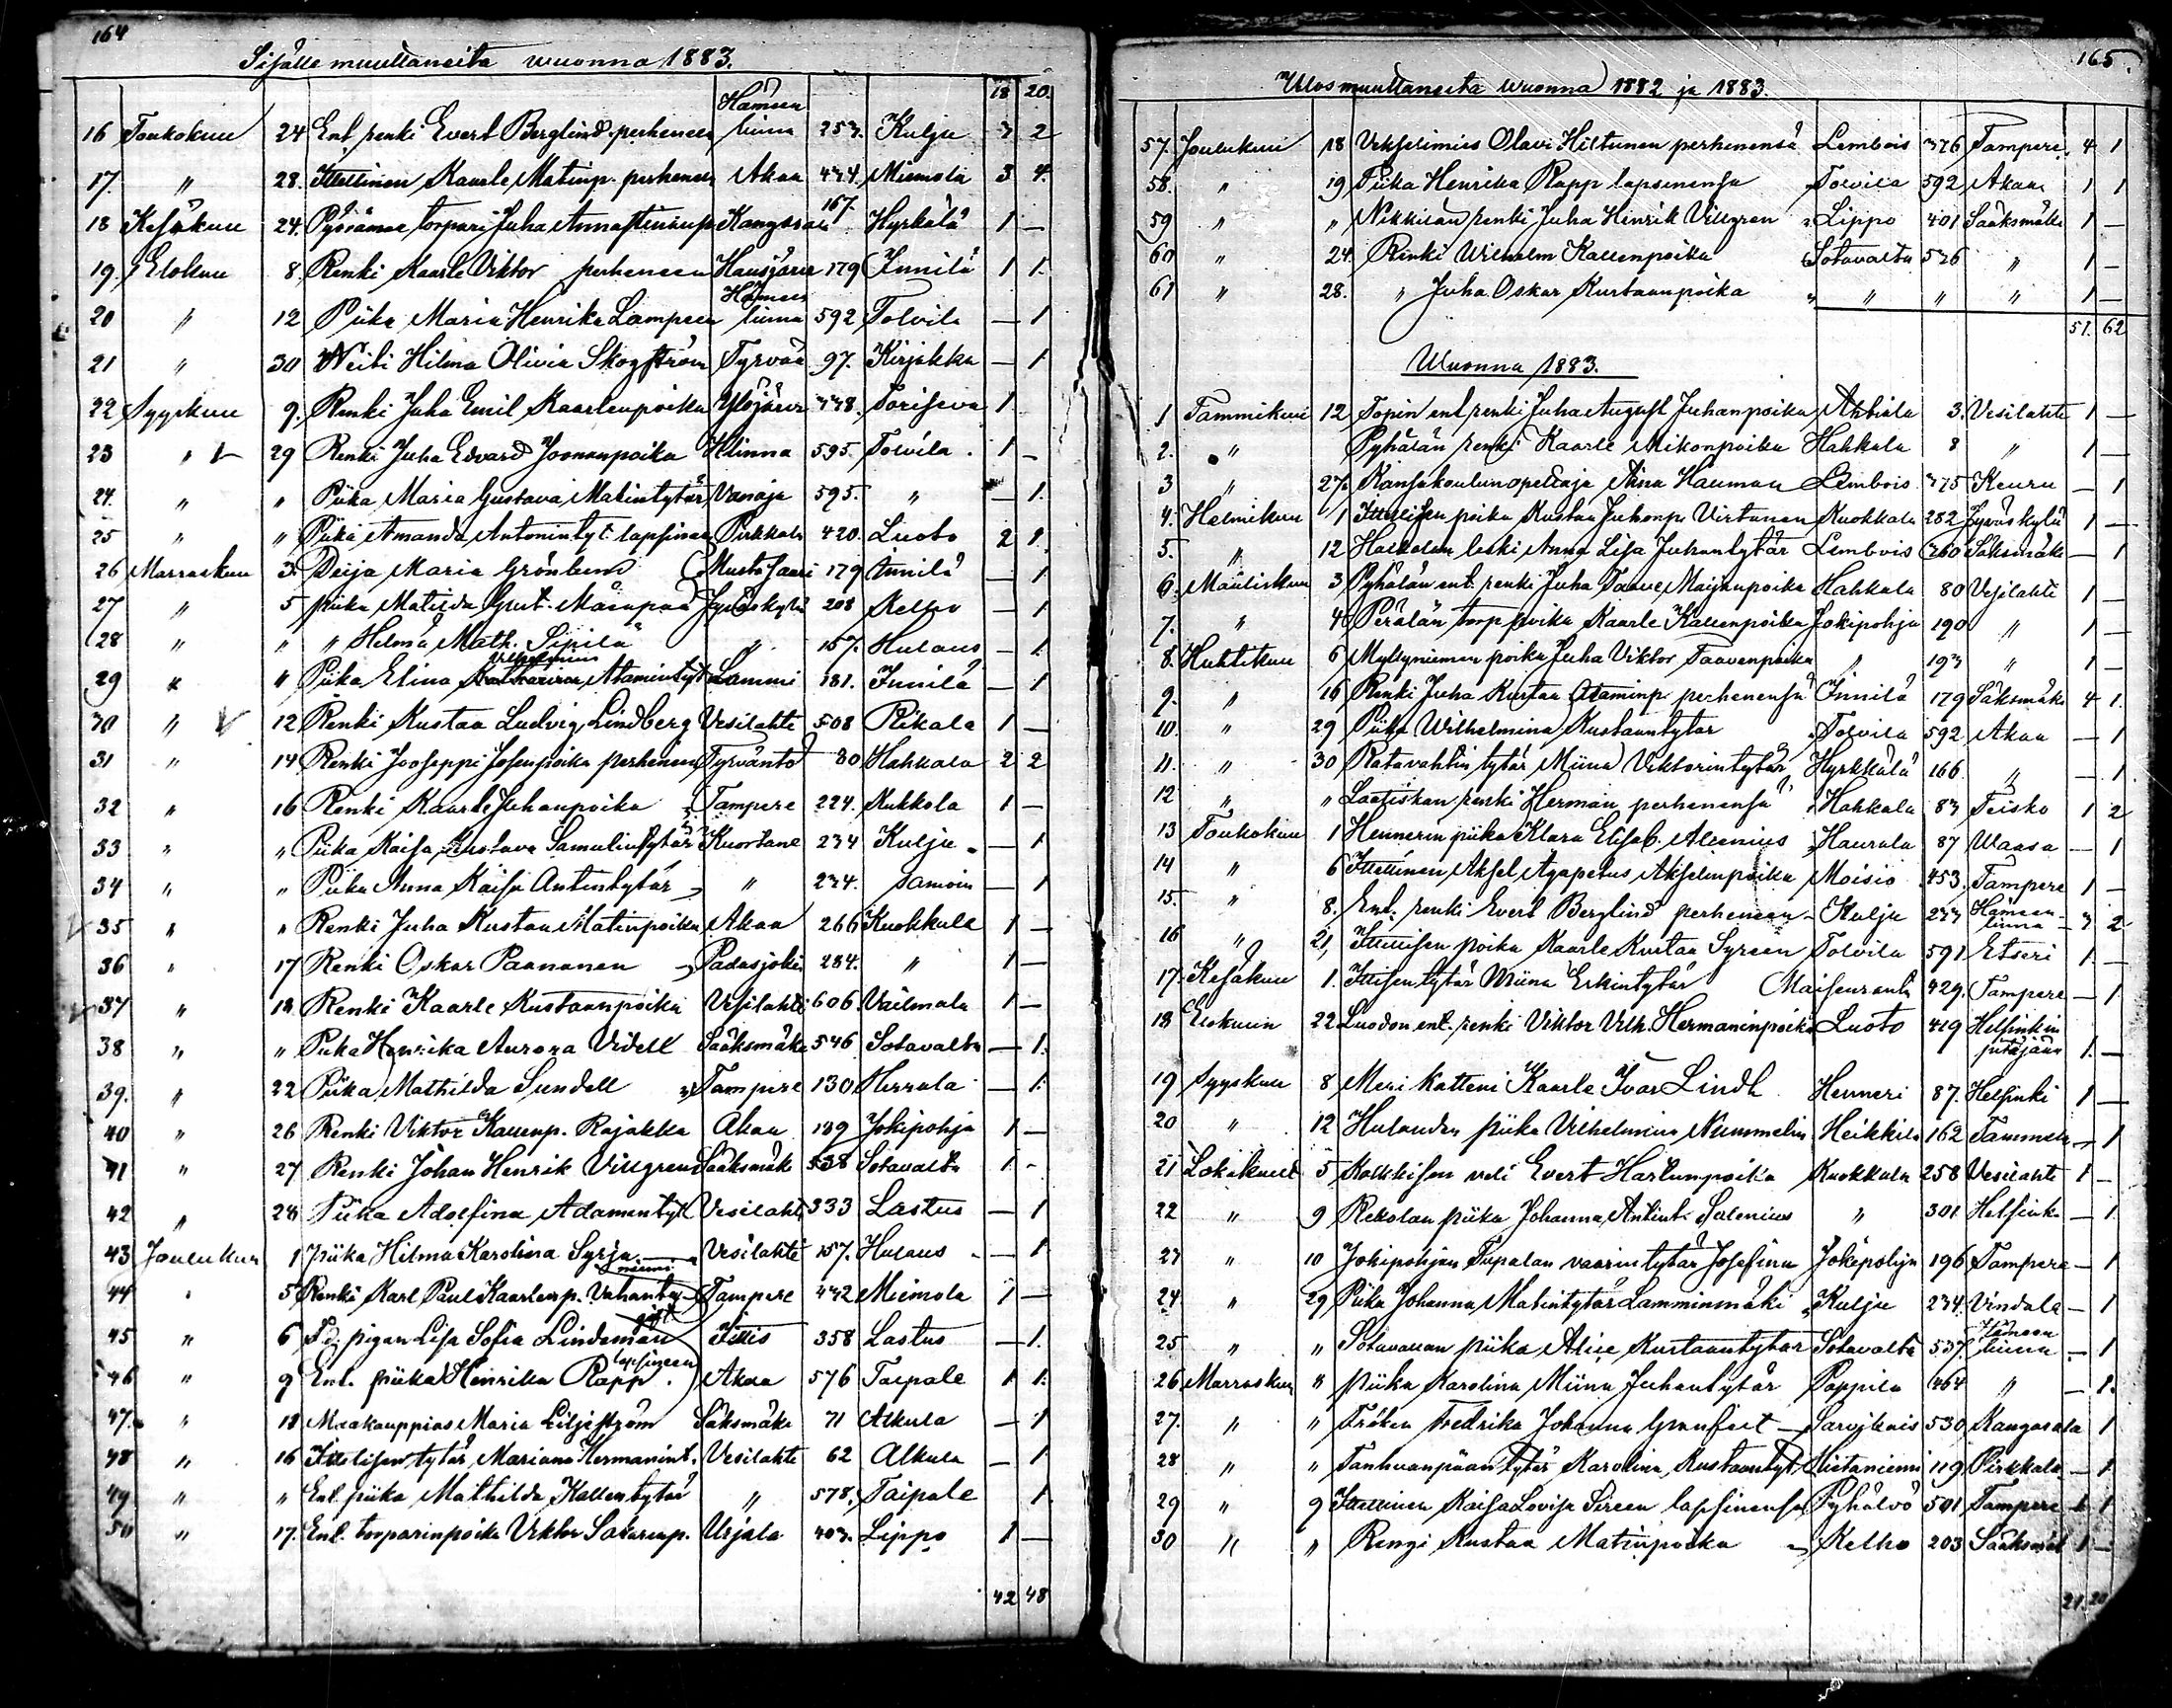 164
Sisälle muuttaneita wuonna 1883.
18 20.
16 Toukokuu 24 Ent. renki Evert Berglind perheneen Hämeenlinna 253. Kulju 3 2
17. " 28. Ittellinen Kaarle Matinp. perheneen Akaa 434. Miemola 3 4.
18 Kesäkuu 24. torpari Juha Kangasala 167. Hyrkälä 1 —
19. Elokuu 8. Renki Kaarle Viktor perheneen Hausjärvi 179 Innilä 1 1.
20 " 12 Piika Maria Henrika Lampeen Hämeenlinna 592 Tolvila — 1
21 " 30 Neiti Hilma Olivia Skogström Tyrvää 97. Kirjakka — 1
22 Syyskuu 9. Renki Juha Emil Kaarlenpoika Ylöjärvi 338. Toriseva 1
23 " 29 Renki Juha Edvard Joonanpoika Hlinna 595. Tolvila. 1 —
24. " " Piika Maria Gustava Matintytär Vanaja 595. " — 1.
25 " " Piika Amanda Antonintyt. lapsineen Pirkkala 420. Luoto 2 1.
26 Marraskuu 3. Deija Maria Grönlund Mustasaari 179 Innilä — 1
27 " 5 piika Matilda Gust. Mäenpää Jyväskylä 208 Kelho — 1
28 " " " Helmä Math. Sipilä " 157. Hulaus — 1.
29 " " Piika Elina Vilhelmina Atamintyt. Lammi 181. Innilä — 1
30 " 12 Renki Kustaa Ludvig Lindberg Vesilahti 508 Rikala 1 —
31 " 14 Renki Jooseppi Josenpoika perheneen Tyrväntö 80 Hahkala 2 2
32 " 16 Renki Kaarle Juhanpoika Tampere 224. Kukkola 1 —
33 " " Piika Kaisa Kustava Samulintytär Kuortane 234 Kulju — 1
34 " " Piika Anna Kaisa Antintytär " 234. samoin — 1
35 " " Renki Juha Kustaa Matinpoika Akaa 266 Kuokkala 1 —
36 " 17 Renki Oskar Paananen Padasjoki 284. " 1 —
37 " 18 Renki Kaarle Kustaanpoika Vesilahti 606. Vailmala 1 —
38 " " Piika Henrika Aurora Videll Sääksmäki 546 Sotavalta — 1.
39. " 22 Piika Mathilda Sundell Tampere 130 Herrala — 1.
40 " 26 Renki Viktor Kallenp. Rajakka Akaa 189 Jokipohja 1 —
41 " 27 Renki Johan Henrik Villgren Sääksmäki 538 Sotavalta 1 -
42 " 28 Piika Adolfina Adamantyt Vesilahti 333 Lastus — 1
43 Joulukuu 1 piika Hilma Karolina Syrjä Vesilahti 157. Hulaus — 1
44 " 5 Renki Karl Paul Kaarlenp. Vahantaniemi Tampere 432 Miemola 1 —
45 " 6 F.d. pigan Lisa Sofia Lindeman gift Iittis 358 Lastus — 1.
46 " 9 Ent. piika Henrika Rapp lapsineen Akaa 576 Taipale 1 1.
47. " 18 Maakauppias Maria Liljeström Säksmäki 71 Alkula — 1
48 " 16 Ittellisen tytär Mariana Hermanint. Vesilahti 62 Alkula — 1
49 " " Ent. piika Mathilda Kallentytär " 578. Taipale 1
50 " 17. Ent. torparinpoika Viktor Sakarinp. Urjala 403. Lippo 1 —
42 48
165.
Ulos muuttaneita wuonna 1882 ja 1883.
57. Joulukuu 18 Olavi Hiltunen perhenensä Lembois 376 Tampere 4 1
58. " 19 Piika Henrika Rapp lapsenensa Tolvila 592 Akaa 1 1
59 " " Nikkilän renki Juha Hinrik Villgren Lippo 401 Sääksmäki 1 —
60 " 24. Renki Wilhelm Kallenpoika Sotavalta 536 " 1 —
61 " 28. " Juha Oskar Kustaanpoika " " " " 1 —
51. 62
Wuonna 1883.
1 Tammikuu 12 Topin ent. renki Juha August Juhanpoika Ahtiala 3. Vesilahti 1 —
2. " Pyhälän renki Kaarle Mikonpoika Hahkala 8 " 1 —
3 " 27. Kansakoulunopettaja Aina Hauman Lembois 375 Keuru — 1
4. Helmikuu 1 Ittellisen poika Kustaa Juhonp. Virtanen Kuokkala 282 Jyväskylä 1 —
5. " 12 leski Anna Lisa Juhantytär Lembois 360 Säksmäki — 1
6. Maaliskuu 3 Pyhälän ent. renki Juha Taave Maijanpoika Hahkala 80 Vesilahti 1 —
7. " 4 Perälän torp poika Kaarle Kallenpoika Jokipohja 190 " 1 —
8. Huhtikuu 6 Myllyniemen poika Juha Viktor Taavenpoika " 193 " 1 —
9. " 16 Renki Juha Kustaa Ataminp. perhenensä Innilä 179 Säksmäki 4 1.
10. " 29 Piika Wilhelmina Kustaantytär Tolvila 592 Akaa — 1
11. " 30 Ratavahtin tytär Miina Viktorintytär Hyrkkälä 166 " — 1.
12 " " Laatiskan renki Herman perhenensä Hahkala 83 Teisko 1 2
13 Toukokuu 1 Hennerin piika Klara Elisab. Alenius Haurala 87 Waasa — 1
14 " 6 Ittellinen Aksel Agapetus Akselinpoika Moisio 453. Tampere 1 —
15. " 8. Ent. renki Evert Berglind perheneen Kulju 233 Hämeenlinna 3 2
16 " 21, Ittellisen poika Kaarle Kustaa Syreen Tolvila 591 Etseri 1 —
17. Kesäkuu 1. Ittisen tytär Miina Erkintytär Maisenranta 429. Tampere — 1.
18 Elokuun 22 Luodon ent. renki Viktor Vilh. Hermaninpoika Luoto 419 Helsinkin pitäjään 1. —
19 Syyskuu 8 Meri katteni Kaarle Ivar Lindh Henneri 87. Helsinki 1 —
20 " 12 Hulauden piika Vilhelmina Nummelin Heikkilä 162 Tammela — 1
21 Lokakuu 5 Kolkkisen veli Evert Hartunpoika Kuokkala 258 Vesilahti 1 —
22 " 9 Rekolan piika Johanna Antint. Salenius " 301 Helsinki — 1.
23 " 10 Jokipohjan Tupalan vaarin tytär Josefina Jokipohja 196 Tampere — 1
24. " 29 Piika Johanna Matintytär Lamminmäki Kulju 234. Vindala — 1
25 " " Sotavallan piika Alise Kustaantytär Sotavalta 537. Hämeenlinna — 1
26 Marraskuu " piika Karolina Miina Juhantytär Pappila 464 " — 1.
27. " " Fröken Fredrika Johanna Granfelt Sarvikais 530 Kangasala 1
28 " " Tanhuanpään tytär Karolina Kustaantyt. Hietaniemi 119 Pirkkala — 1
29 " 9 Ittellinen Kaisa Lovisa Sireen lapsinensa Pyhälvö 501 Tampere 1 1
30 " " Rengi Kustaa Matinpoika Kelho 203 Sääksmäki 1 —
21. 20